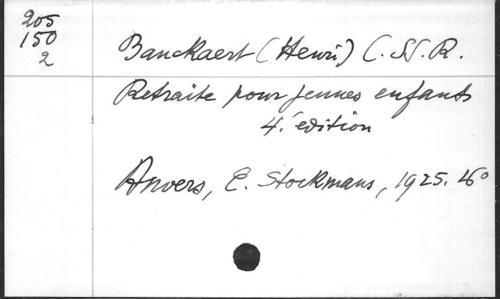 205
150
2
Banckaert (Henri) C. SS. R.
Retraite pour jeunes enfants
4.e edition
Anvers, E. Stockmans, 1925. 16°